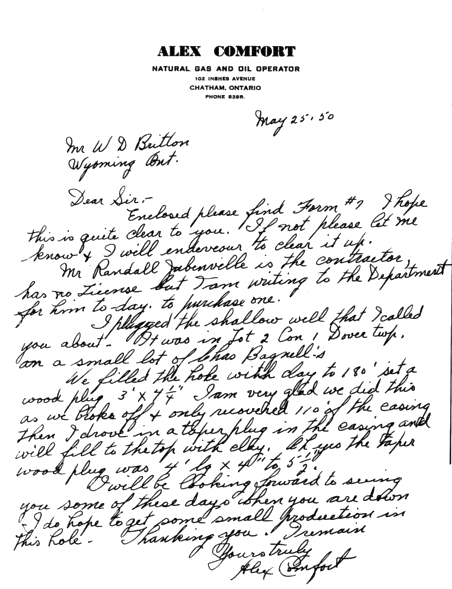 ALEX COMFORT
NATURAL GAS AND OIL OPERATOR
102 INSHES AVENUE
CHATHAM, ONTARIO
PHONE 638R.
May 25, 50
Mr W D Britton
Wyoming Ont.
Dear Sir,-
Enclosed please find Form #7 I hope
this is quite clear to you. If not please let me
know & I will endevour to clear it up.
Mr Randall Jubenville is the contractor,
has no License but I am writing to the Department
for him to-day. to purchase one.
I plugged the shallow well that I called
you about. It was in Lot 2 Con 1 Dover twp.
on a small lot of Chas Bagnell's
We filled the hole with clay to 180' set a
wood plug 3' x 7¼" I am very glad we did this
as we broke off & only recovered 110 of the casing
then I drove in a taper plug in the casing and
will fill to the top with clay. Oh yes the taper
wood plug was 4' lg x 4" to 5-½".
I will be looking forward to seeing
you some of these days when you are down
- I do hope to get some small production in
this hole. Thanking you. I remain
Yours truly
Alex Comfort